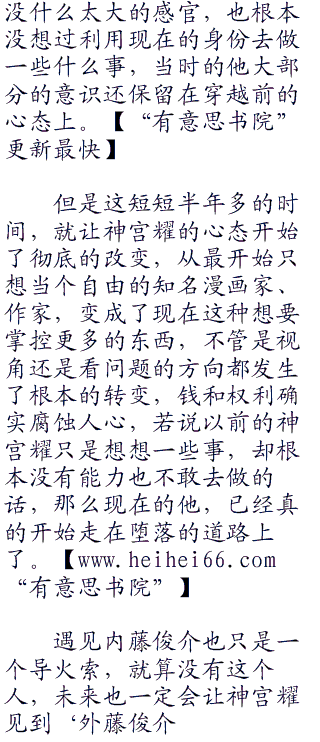 没什么太大的感官，也根本
没想过利用现在的身份去做
一些什么事，当时的他大部
分的意识还保留在穿越前的
心态上。【“有意思书院”
更新最快】
但是这短短半年多的时
间，就让神宫耀的心态开始
了彻底的改变，从最开始只
想当个自由的知名漫画家、
作家，变成了现在这种想要
掌控更多的东西，不管是视
角还是看问题的方向都发生
了根本的转变，钱和权利确
实腐蚀人心，若说以前的神
宫耀只是想想一些事，却根
本没有能力也不敢去做的
话，那么现在的他，已经真
的开始走在堕落的道路上
了。【www.heihei66.com
“有意思书院”】
遇见内藤俊介也只是一
个导火索，就算没有这个
人，未来也一定会让神宫耀
见到‘外藤俊介